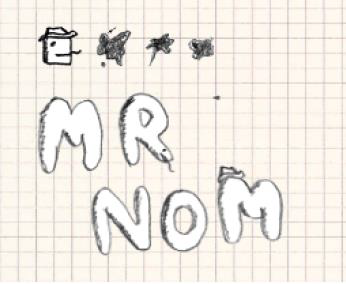 MR
NOM